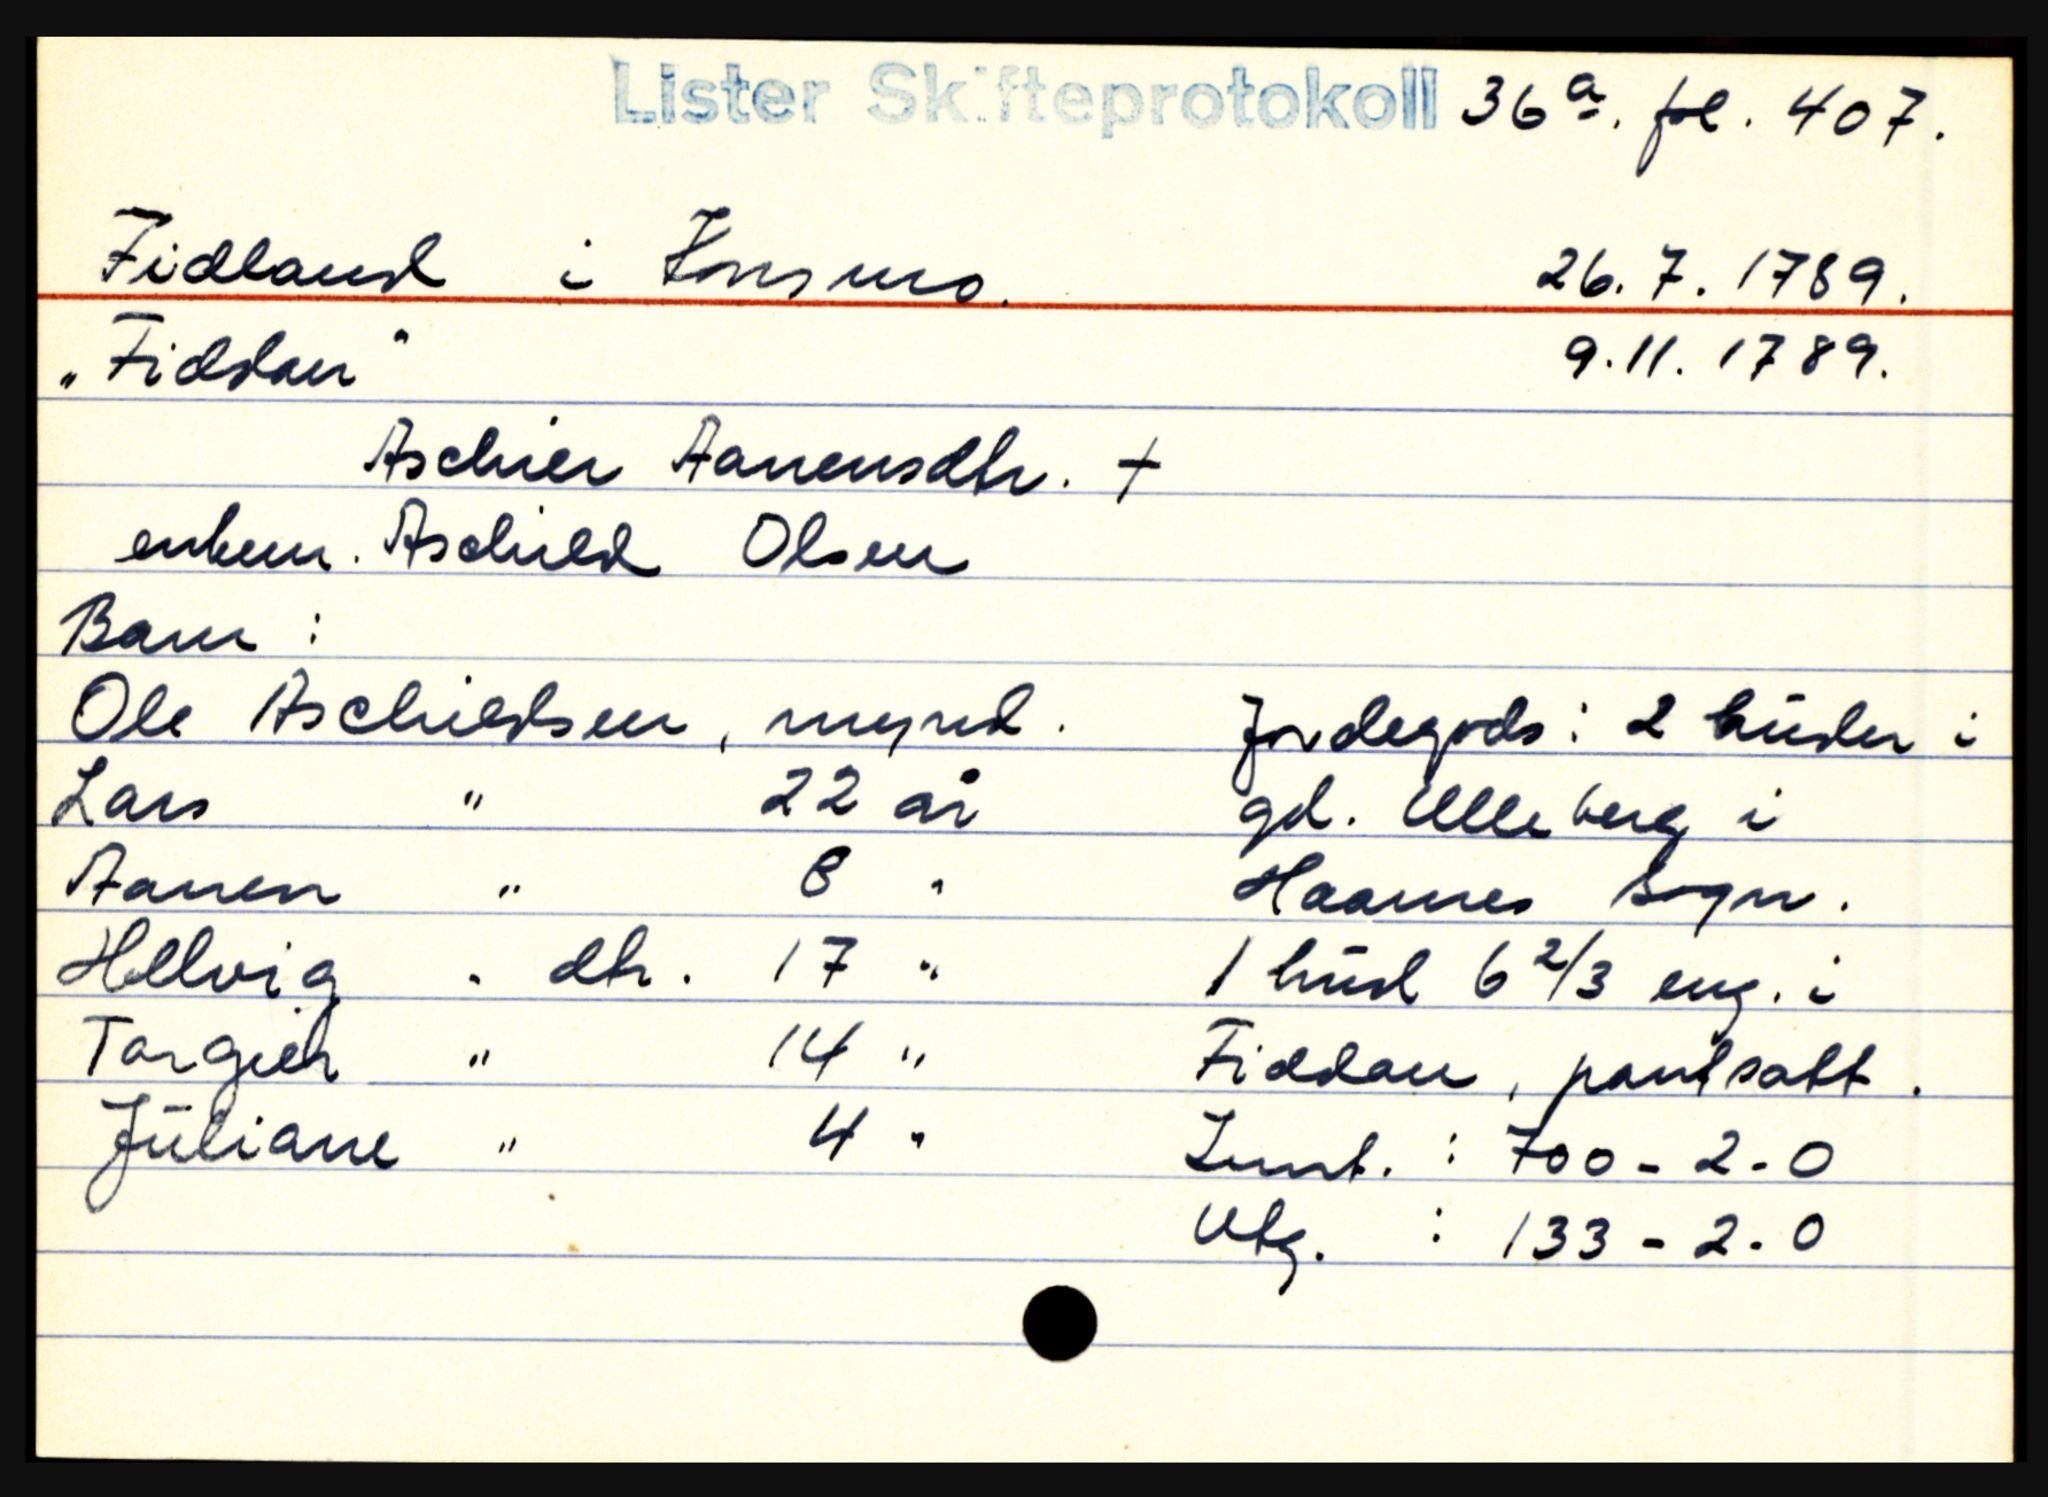 Lister Skifteprotokoll 36a. fol. 407.
Fidland i Konsmo. 26.7.1789.
"Fiddan" 9.11.1789.
Aschier Aanensdtr. +
enkem. Aschild Olsen
Barn:
Ole Aschieldsen, mynd.
Lars " 22 år
Aanen " 8 "
Hellvig " dtr. 17 "
Targier " 14 "
Jūliane " 4 "
Jordegods: 2 hūder i
gd. Ulleberg i
Haannes Sogn.
1 hūd 6 2/3 eng. i
Fiddan, pantsatt.
Innt. : 700-2-0
Utg. : 133-2-0